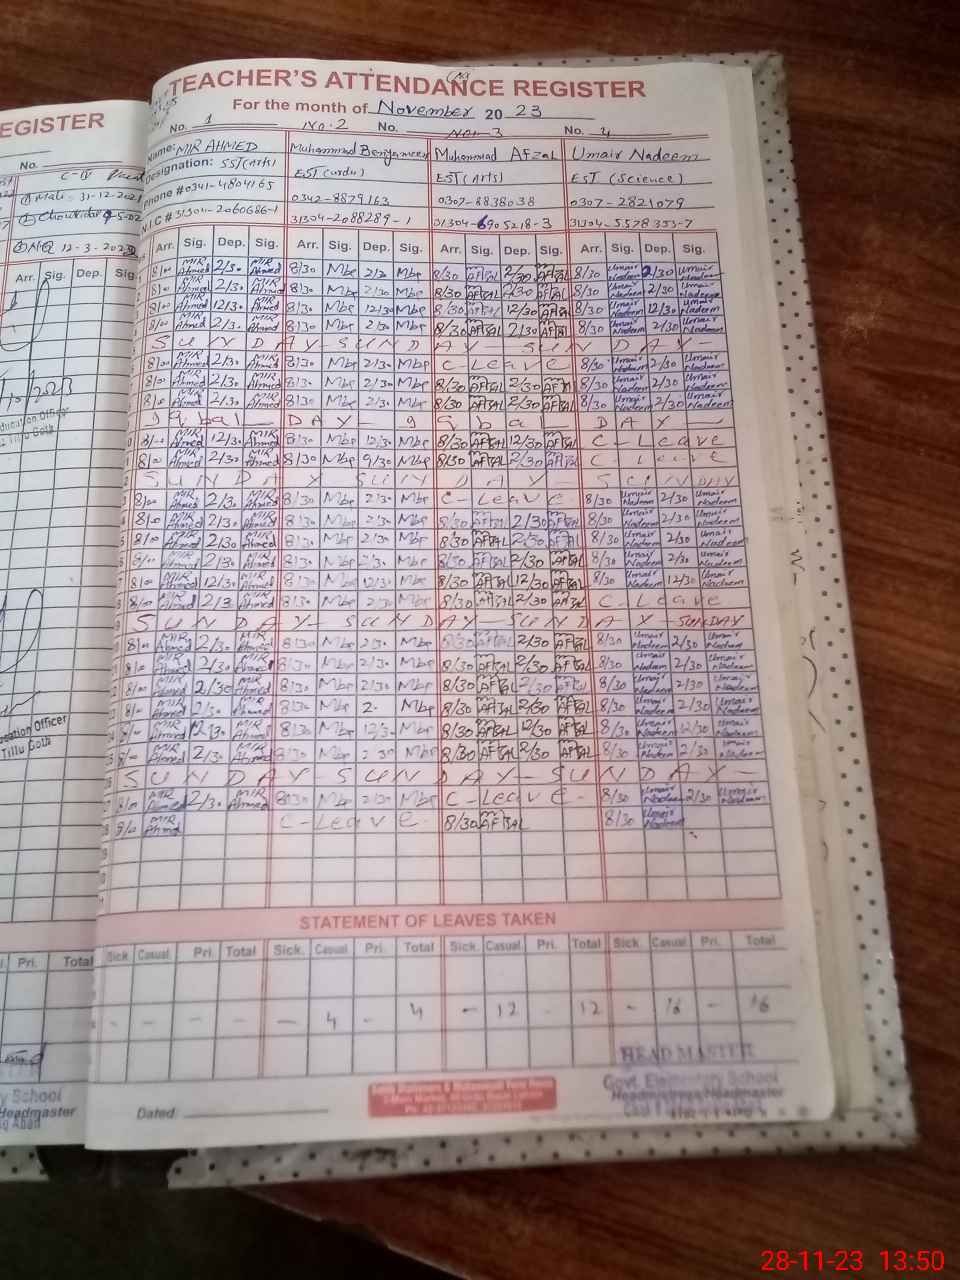 EGISTER
No.
C-IV
① Mali - 31-12-2021
② Chowkidar
③ NQ 12-3-2022
Arr. Sig. Dep. Sig.
ducation Officer
Tillu Goth
ucation Officer
Tillu Goth
Pri. Total
y School
Headmaster
TEACHER'S ATTENDANCE REGISTER
For the month of November 20 23
No. 1 No. 2 No. No. 3 No. 4
Name: MIR AHMED Muhammad Benyameen Muhammad Afzal Umair Nadeem
Designation: SST(Arts) EST(urdu) EST(Arts) EST (Science)
Phone # 0341-4804165 0342-8879163 0307-8838038 0307-2821079
N.I.C # 31304-2060686-1 31304-2088289-1 31304-6905218-3 31304-5578353-7
Arr. Sig. Dep. Sig. Arr. Sig. Dep. Sig. Arr. Sig. Dep. Sig. Arr. Sig. Dep. Sig.
8/00 MIR Ahmed 2/30 MIR Ahmed 8/30 Mbe 2/30 Mbe 8/30 AFZAL 2/30 AFZAL 8/30 Umair Nadeem 2/30 Umair Nadeem
8/00 MIR Ahmed 2/30 MIR Ahmed 8/30 Mbe 2/30 Mbe 8/30 AFZAL 2/30 AFZAL 8/30 Umair Nadeem 2/30 Umair Nadeem
8/00 MIR Ahmed 12/30 MIR Ahmed 8/30 Mbe 12/30 Mbe 8/30 AFZAL 12/30 AFZAL 8/30 Umair Nadeem 12/30 Umair Nadeem
8/00 MIR Ahmed 2/30 MIR Ahmed 8/30 Mbe 2/30 Mbe 8/30 AFZAL 2/30 AFZAL 8/30 Umair Nadeem 2/30 Umair Nadeem
SUNDAY - SUNDAY - SUNDAY -
8/00 MIR Ahmed 2/30 MIR Ahmed 8/30 Mbe 2/30 Mbe C - Leave 8/30 Umair Nadeem 2/30 Umair Nadeem
8/00 MIR Ahmed 2/30 MIR Ahmed 8/30 Mbe 2/30 Mbe 8/30 AFZAL 2/30 AFZAL 8/30 Umair Nadeem 2/30 Umair Nadeem
8/00 MIR Ahmed 2/30 MIR Ahmed 8/30 Mbe 2/30 Mbe 8/30 AFZAL 2/30 AFZAL 8/30 Umair Nadeem 2/30 Umair Nadeem
Iqbal DAY - Iqbal DAY -
8/00 MIR Ahmed 12/30 MIR Ahmed 8/30 Mbe 12/30 Mbe 8/30 AFZAL 12/30 AFZAL C - Leave
8/00 MIR Ahmed 2/30 MIR Ahmed 8/30 Mbe 2/30 Mbe 8/30 AFZAL 2/30 AFZAL C - Leave
SUNDAY SUNDAY - SUNDAY
8/00 MIR Ahmed 2/30 MIR Ahmed 8/30 Mbe 2/30 Mbe C - Leave 8/30 Umair Nadeem 2/30 Umair Nadeem
8/00 MIR Ahmed 2/30 MIR Ahmed 8/30 Mbe 2/30 Mbe 8/30 AFZAL 2/30 AFZAL 8/30 Umair Nadeem 2/30 Umair Nadeem
8/00 MIR Ahmed 2/30 MIR Ahmed 8/30 Mbe 2/30 Mbe 8/30 AFZAL 2/30 AFZAL 8/30 Umair Nadeem 2/30 Umair Nadeem
8/00 MIR Ahmed 2/30 MIR Ahmed 8/30 Mbe 2/30 Mbe 8/30 AFZAL 2/30 AFZAL 8/30 Umair Nadeem 2/30 Umair Nadeem
8/00 MIR Ahmed 12/30 MIR Ahmed 8/30 Mbe 12/30 Mbe 8/30 AFZAL 12/30 AFZAL 8/30 Umair Nadeem 12/30 Umair Nadeem
8/00 MIR Ahmed 2/30 MIR Ahmed 8/30 Mbe 2/30 Mbe 8/30 AFZAL 2/30 AFZAL C - Leave
SUNDAY - SUNDAY - SUNDAY - SUNDAY
8/00 MIR Ahmed 2/30 MIR Ahmed 8/30 Mbe 2/30 Mbe 8/30 AFZAL 2/30 AFZAL 8/30 Umair Nadeem 2/30 Umair Nadeem
8/00 MIR Ahmed 2/30 MIR Ahmed 8/30 Mbe 2/30 Mbe 8/30 AFZAL 2/30 AFZAL 8/30 Umair Nadeem 2/30 Umair Nadeem
8/00 MIR Ahmed 2/30 MIR Ahmed 8/30 Mbe 2/30 Mbe 8/30 AFZAL 2/30 AFZAL 8/30 Umair Nadeem 2/30 Umair Nadeem
8/00 MIR Ahmed 2/30 MIR Ahmed 8/30 Mbe 2- Mbe 8/30 AFZAL 2/30 AFZAL 8/30 Umair Nadeem 2/30 Umair Nadeem
8/00 MIR Ahmed 12/30 MIR Ahmed 8/30 Mbe 12/30 Mbe 8/30 AFZAL 12/30 AFZAL 8/30 Umair Nadeem 12/30 Umair Nadeem
8/00 MIR Ahmed 2/30 MIR Ahmed 8/30 Mbe 2/30 Mbe 8/30 AFZAL 2/30 AFZAL 8/30 Umair Nadeem 2/30 Umair Nadeem
SUNDAY - SUNDAY - SUNDAY -
8/00 MIR Ahmed 2/30 MIR Ahmed 8/30 Mbe 2/30 Mbe C - Leave - 8/30 Umair Nadeem 2/30 Umair Nadeem
8/00 MIR Ahmed C - Leave 8/30 AFZAL 8/30 Umair Nadeem
STATEMENT OF LEAVES TAKEN
Sick. Casual. Pri. Total Sick. Casual Pri. Total Sick. Casual. Pri. Total Sick. Casual. Pri. Total
- - - - - 4 - 4 - 12 - 12 - 16 - 16
HEAD MASTER
Govt. Elementary School
Headmistress/Headmaster
Dated:
28-11-23 13:50